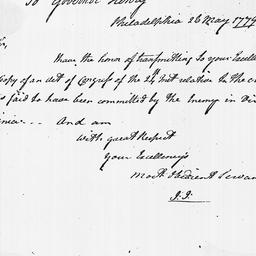 To Governor Henry
Philadelphia 26 May 1779
Sir,
I have the honor of transmitting to your Excelle
Copy of an act of Congress of the 24 Inst relative to the cr
s said to have been committed by the Enemy in Vir
ginia... And am
With great Respect
Your Excellency's
Most Obedient Servan
J. J.